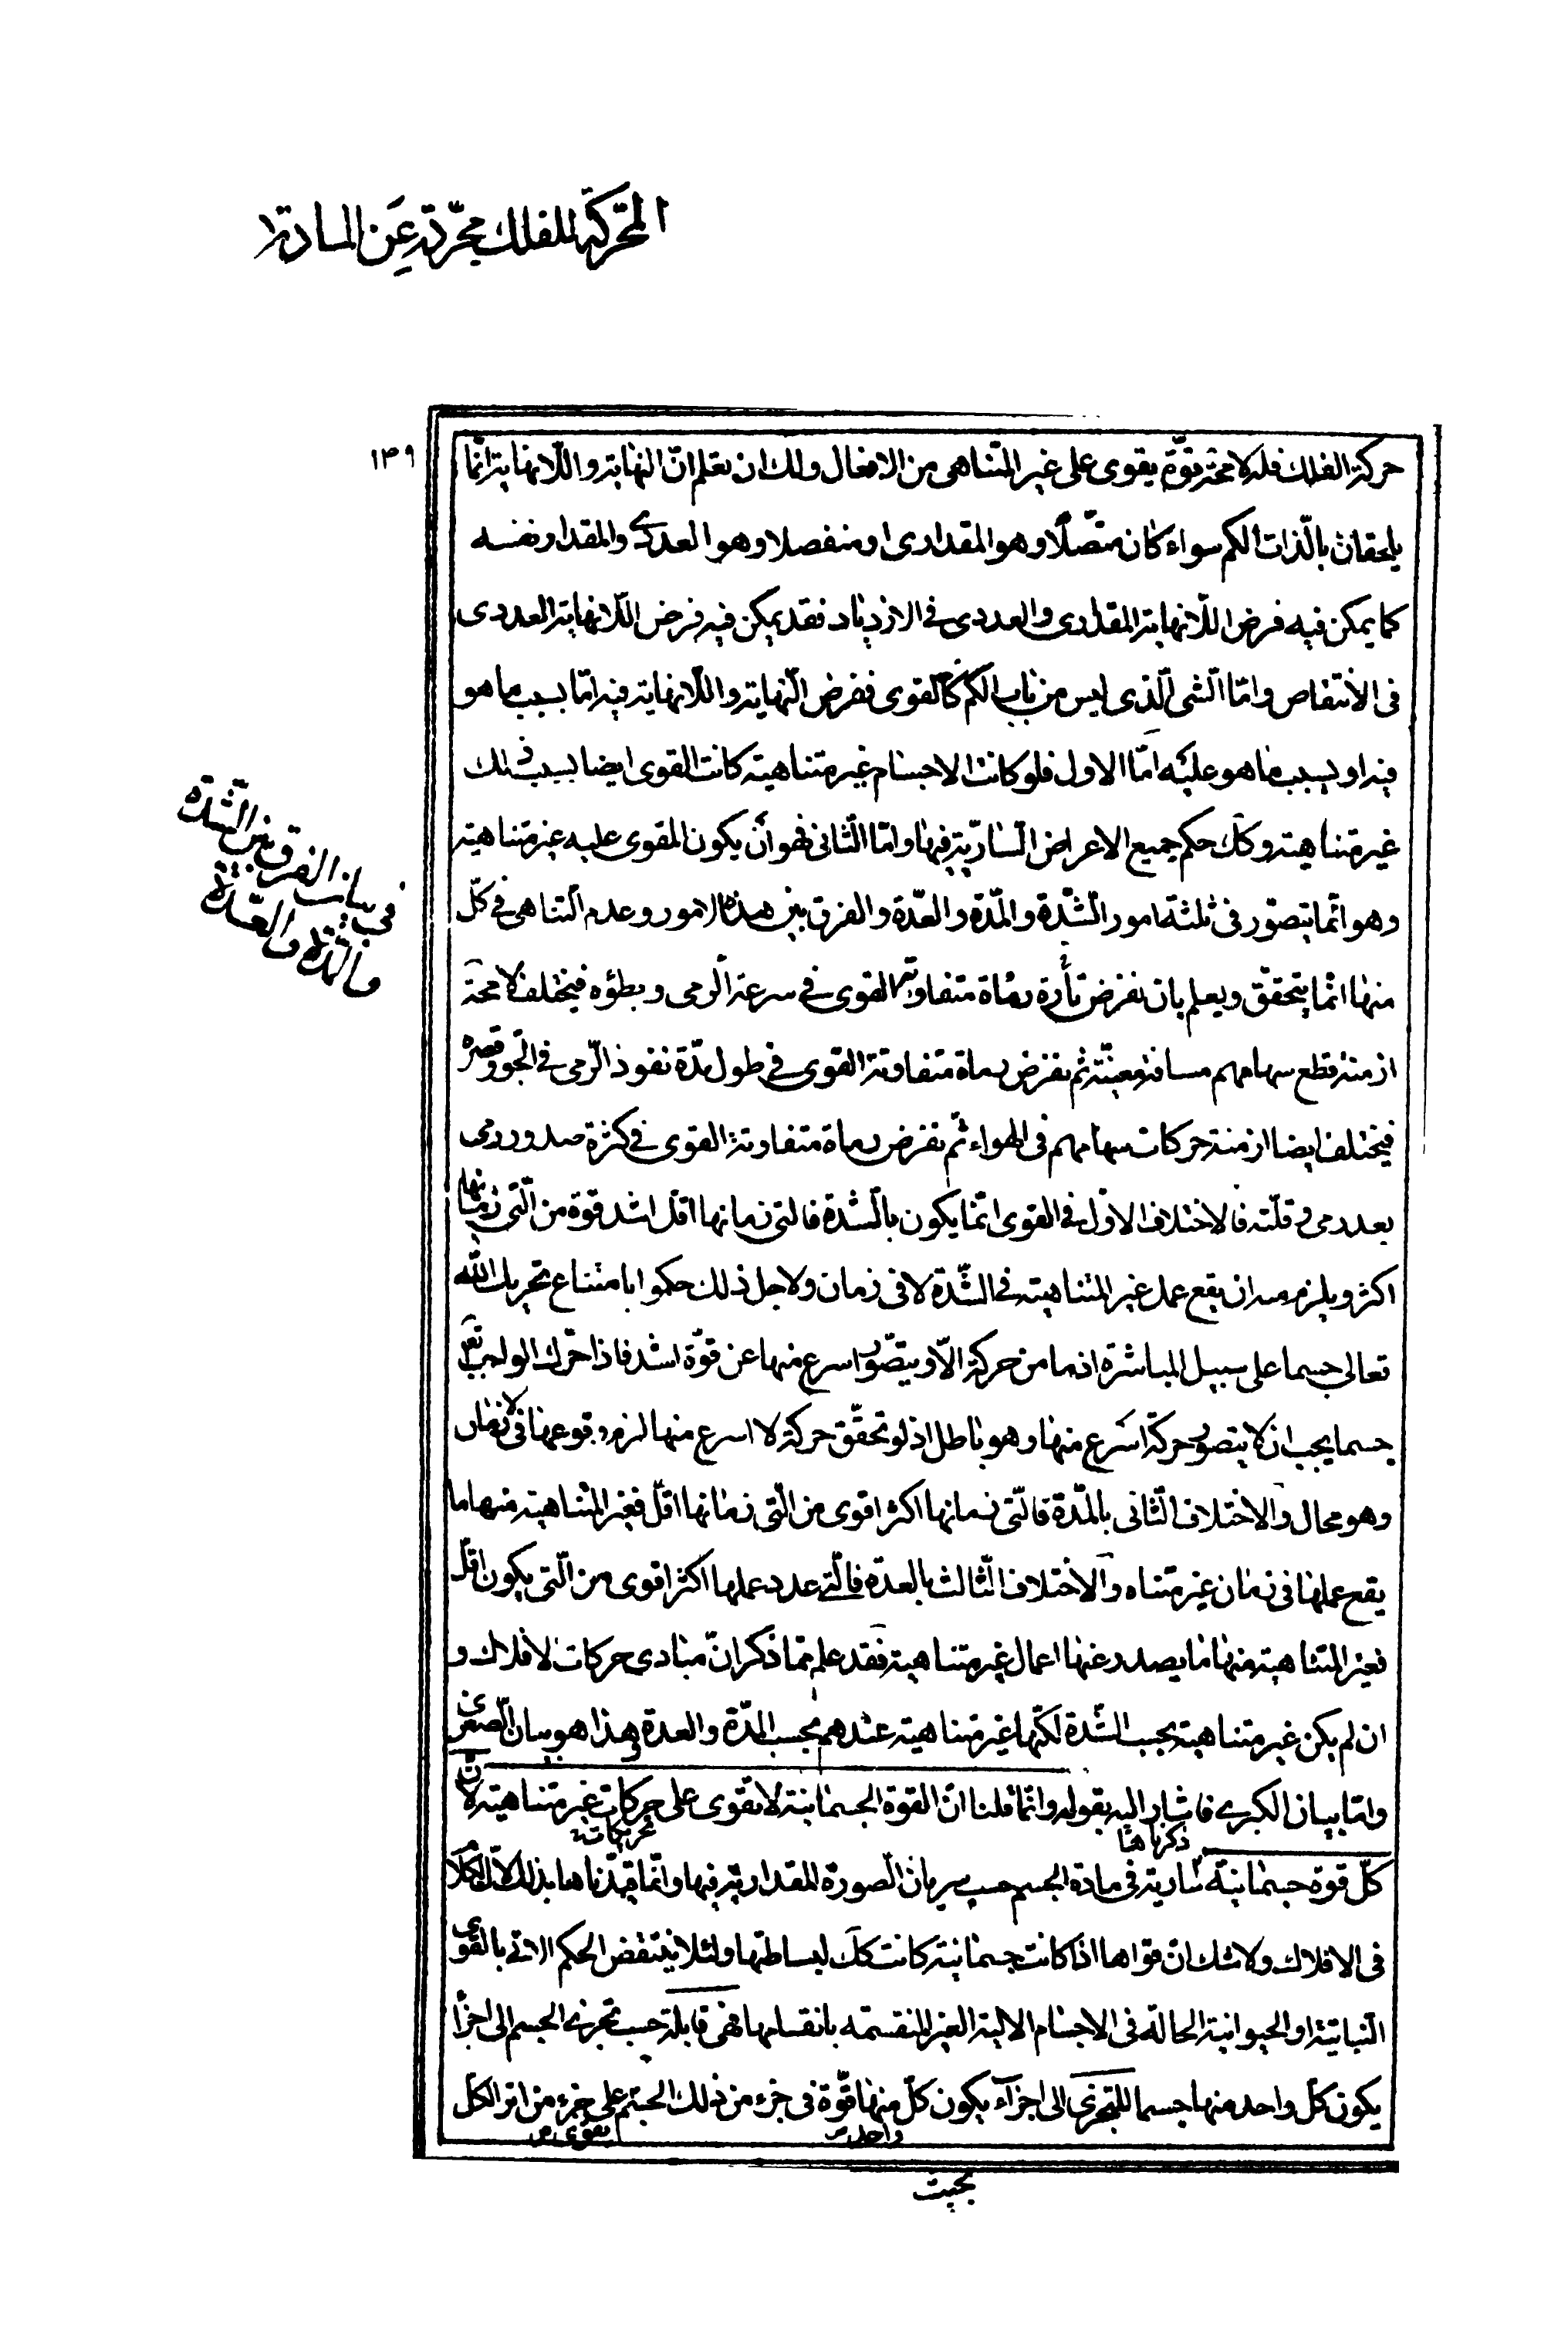 المحركة للفلك مجردة عن المادة
١٣٩
حركة الفلك فله لا محة قوّة يقوى على غير المتناهى من الافعال ولك ان تعلم انّ النهاية واللّانهاية انّما
يلحقان بالّذات الكم سواء كان متّصلا وهو المقدارى او منفصلا وهو العددى والمقدار نفسه
كما يمكن فيه فرض اللّانهاية المقدارى والعددى فى الازدياد فقد يمكن فيه فرض اللّانهاية العددى
فى الانتقاص وامّا الشى الّذى ليس من باب الكم كالقوى ففرض النّهاية واللّانهاية فيه امّا بسبب ما هو
فيه او بسبب ما هو عليه امّا الاول فلو كانت الاجسام غير متناهية كانت القوى ايضا بسبب ذلك
غير متناهية وكك حكم جميع الاعراض السّارية فيها وامّا الثّانى فهو أن يكون المقوى عليه غير متناهية
وهو انّما يتصوّر فى ثلثة امور الشّدة والمّدة والعّدة والفرق بين هذه الامور وعدم التناهى فى كلّ
منها انّما يتحقّق ويعلم بان نفرض تارة رماة متفاوتة القوى فى سرعة الرمى وبطؤه فيختلف لا محة
ازمنة قطع سهامهم مسافة معينّة ثم نفرض رماة متفاوتة القوى فى طول مدّة نفوذ الرّمى فى الجّو وقصره
فيختلف ايضا ازمنة حركات سهامهم فى الهواء ثم نفرض رماة متفاوتة القوى فى كثرة صدور رمى
بعد رمى وقلّته فالاختلاف الاوّل فى القوى انّما يكون بالشّدة فالتى زمانها اقل اشد قوة من الّتى زمانها
اكثر ويلزم منه ان يقع عمل غير المتناهية فى الشّدة لا فى زمان ولاجل ذلك حكموا بامتناع تحريك الله
تعالى جسما على سبيل المباشرة اذ ما من حركة الّا ويتصّور اسرع منها عن قوّة اشد فاذا حرّك الواجب تعالى
جسما يجب ان لا يتصور حركة اسرع منها وهو باطل اذ لو تحقّق حركة لا اسرع منها لزم وقوعها لا فى زمان
وهو محال والاختلاف الثّانى بالمّدة فالّتى زمانها اكثر اقوى من الّتى زمانها اقلّ فغير المتناهية منها ما
يقع عملها فى زمان غير متناه والاختلاف الثّالث بالعدة فالّتى عدد عملها اكثر اقوى من الّتى يكون اقلّ
فغير المتناهية منها ما يصدر عنها اعمال غير متناهية فقد علم ممّا ذكر انّ مبادى حركات الافلاك و
ان لم يكن غير متناهية بحسب الشّدة لكنّها غير متناهية عندهم بحسب المدّة والعدة وهذا هو بيان الصّغرى
وامّا بيان الكبرى فاشار اليه بقوله وانّما قلنا انّ القوة الجسمانية لا تقوى على حركات غير متناهية لانّ
ذكرنا هنا
تحريكات
كلّ قوة جسمانيّة سّارية فى مادة الجسم حسب سريان الصورة المقدارية فيها وانّما قيّدناها بذلك لانّ الكلام
فى الافلاك ولا شك انّ قواها اذا كانت جسمانية كانت كك لبساطتها ولئلا ينتقض الحكم الاتى بالقوى
النّباتية او الحيوانية الحالّة فى الاجسام الالية الغير المنقسمة بانقسامها فهى قابلة حسب تجزى الجسم الى اجزا
يكون كلّ واحد منها جسما للتجزى الى اجزآء يكون كلّ منها قوّة فى جزء من ذلك الجسم على جزء من اثر الكلّ
واحد
يقوى
بحيث
فى بيان الفرق بين الشّدة
والمّدة والعدّة